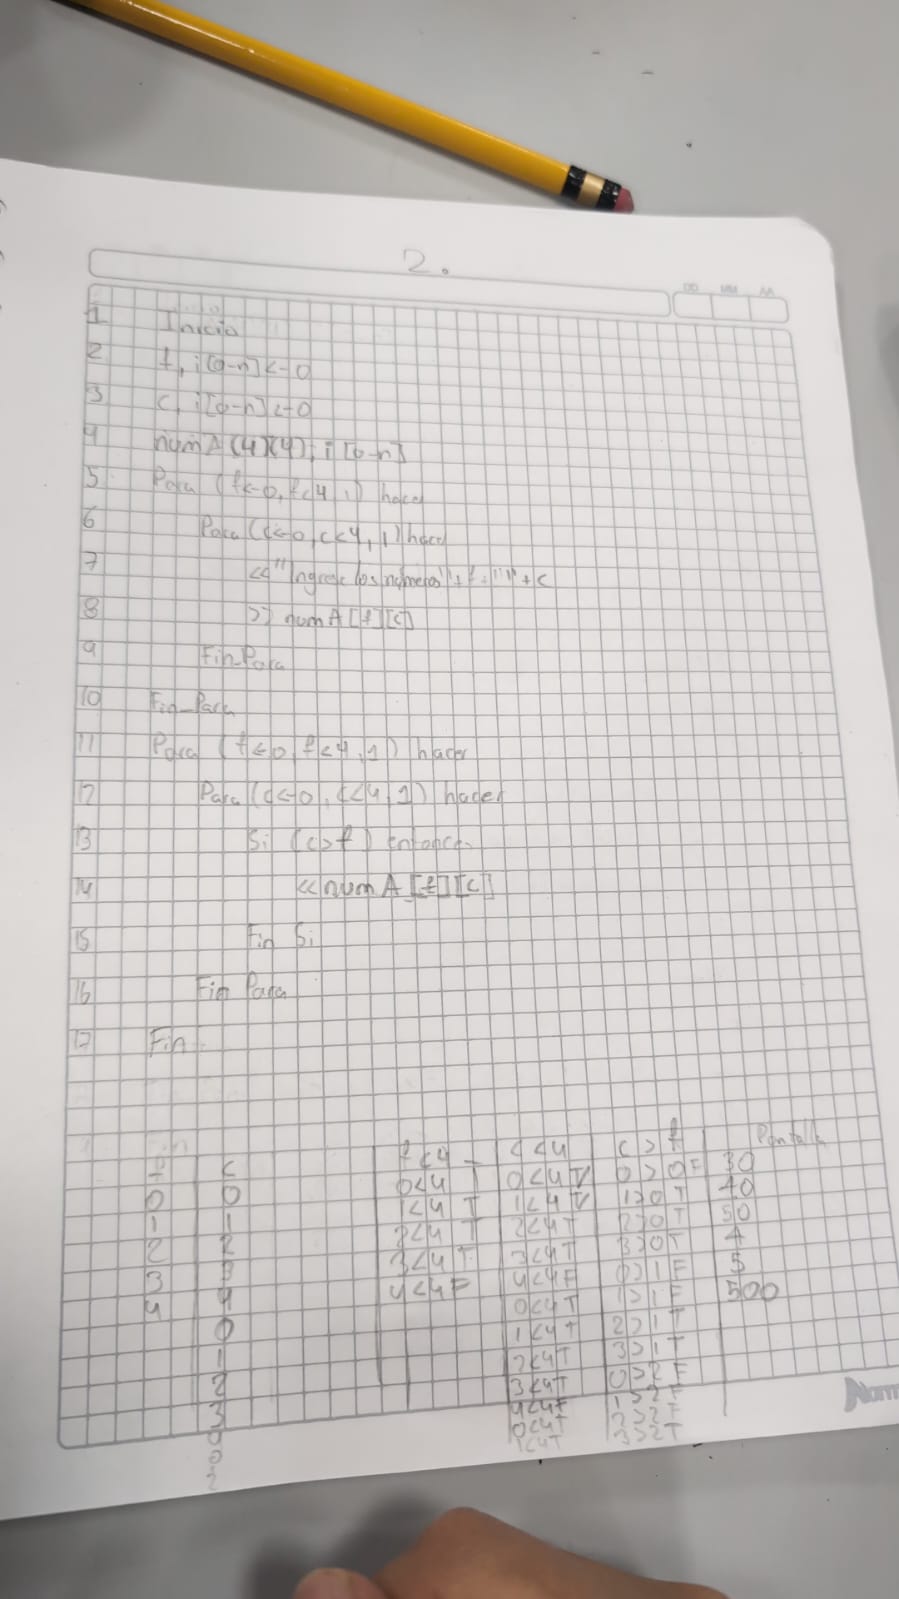 2.
DD MM AA
1 Inicio
2 f, i[0-n]<-0
3 c, i[0-n]<-0
4 numA(4)(4), i[0-n]
5 Para (f<-0, f<4, 1) hacer
6 Para (c<-0, c<4, 1) hacer
7 <<"Ingrese los números"+f+","+c
8 >> numA[f][c]
9 Fin-Para
10 Fin-Para
11 Para (f<-0, f<4, 1) hacer
12 Para (c<-0, c<4, 1) hacer
13 Si (c>f) entonces
14 <<numA[f][c]
15 Fin Si
16 Fin Para
17 Fin
f c f<4 c<4 c>f Pantalla
0 0 0<4 T 0<4 T 0>0 F 30
1 1 1<4 T 1<4 T 1>0 T 40
2 2 2<4 T 2<4 T 2>0 T 50
3 3 3<4 T 3<4 T 3>0 T 4
4 4 4<4 F 4<4 F 0>1 F 5
0 0<4 T 1>1 F 500
1 1<4 T 2>1 T
2 2<4 T 3>1 T
3 3<4 T 0>2 F
4<4 F 1>2 F
0 0<4 T 2>2 F
2 1<4 T 3>2 T
Norm